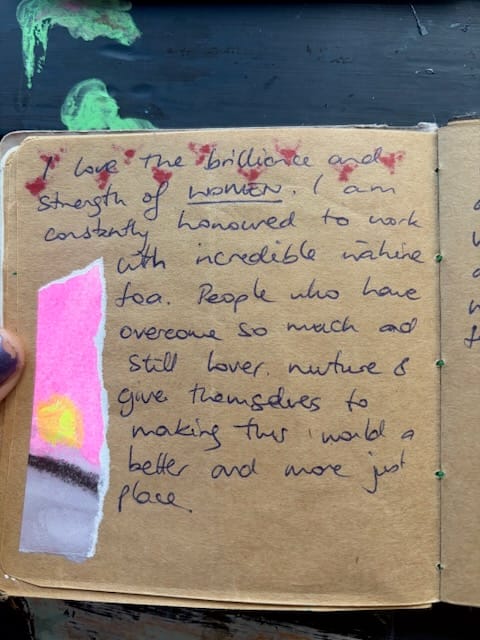 I love the brilliance and
strength of WOMEN. I am
constantly honoured to work
with incredible wāhine
toa. People who have
overcome so much and
still lover, nurture &
give themselves to
making this world a
better and more just
place.